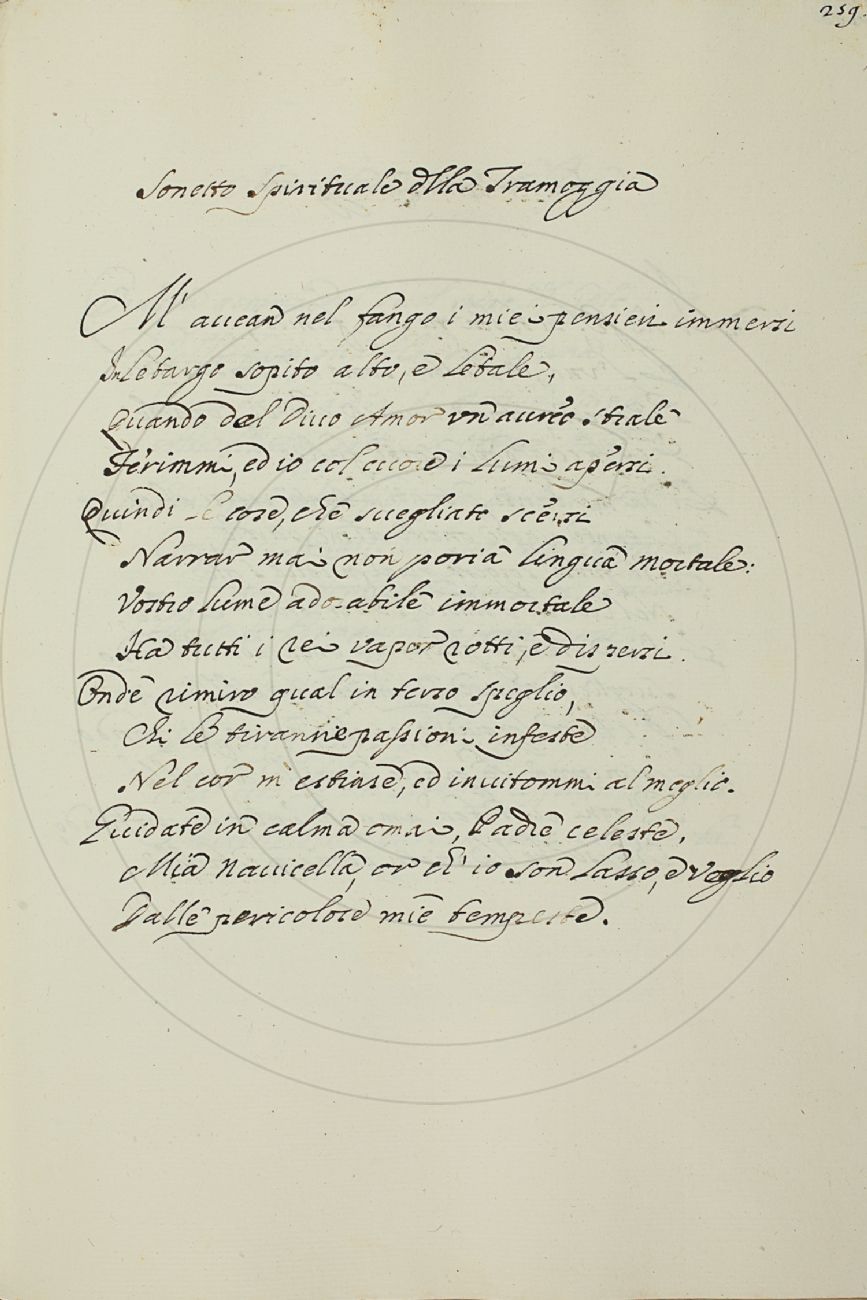 259.
Sonetto Spirituale dlla Tramoggia
M' avean nel fango i miei pensieri immersi
In letargo sopito alto, e letale,
Quando del Divo Amor un aureo strale
Ferimmi, ed io col cuore i lumi apersi.
Quindi le cose, che svegliato scersi
Narrar mai non poria lingua mortale:
Vostro lume adorabile immortale
Ha tutti i rei vapor rotti, e dispersi.
Onde rimiro qual in terso speglio,
Chi le tiranne passioni infeste
Nel cor m' estinse, ed invitommi al meglio.
Guidate in calma omai, Padre celeste,
Mia Navicella, or ch' io son lasso, e veglio
Dalle pericolose mie tempeste.